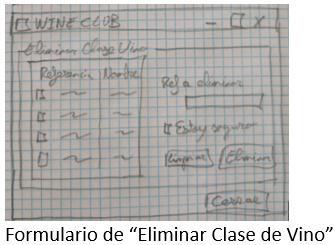 WINE CLUB
Eliminar Clase Vino
Referencia Nombre
Ref a eliminar
Estoy seguro
Limpiar Eliminar
Cerrar
Formulario de “Eliminar Clase de Vino”